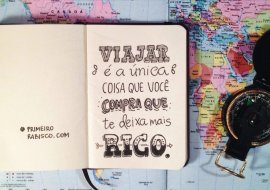 VIAJAR
é a única
COISA QUE VOCÊ
COMPRA QUE
te deixa mais
RICO.
PRIMEIRO
RABISCO.COM